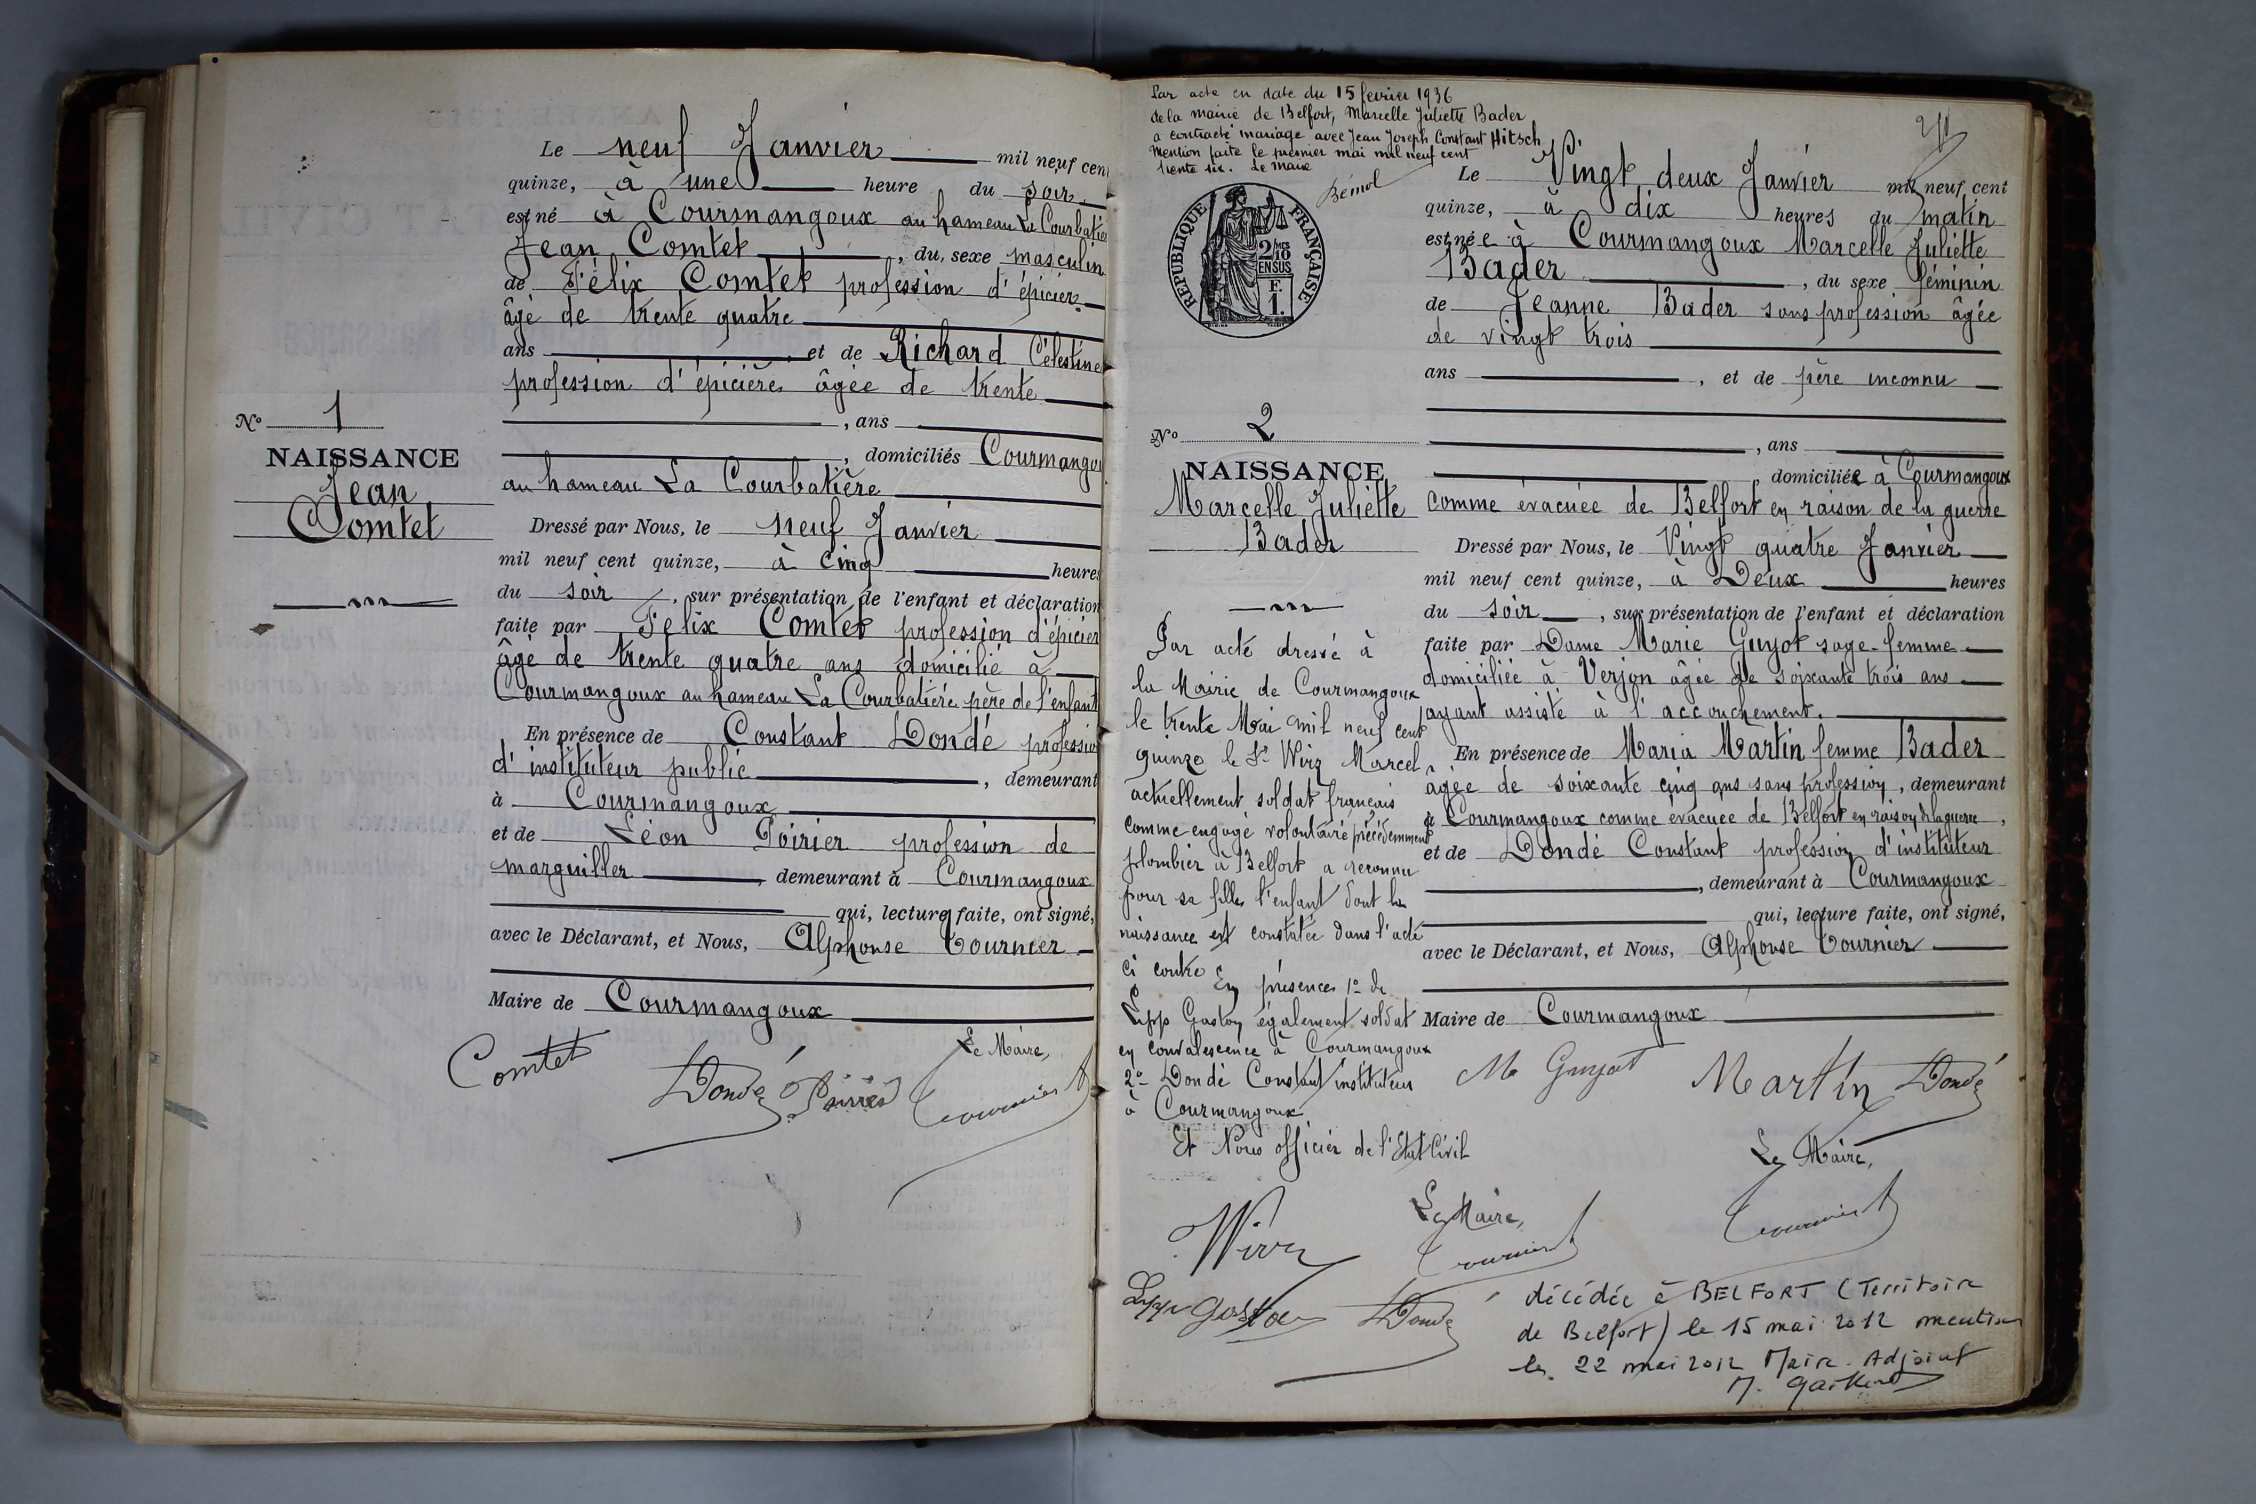 Le neuf Janvier mil neuf cent
quinze, à une heure du soir
est né à Courmangoux au hameau La Courbatière
Jean Comtet, du sexe masculin
de Félix Comtet profession d'épicier
âgé de trente quatre
ans et de Richard Célestine
profession d'épicière âgée de trente
, ans
, domiciliés Courmangoux
au hameau La Courbatière
Nº 1
NAISSANCE
Jean
Comtet
Dressé par Nous, le neuf Janvier
mil neuf cent quinze, à cinq heures
du soir, sur présentation de l'enfant et déclaration
faite par Félix Comtet profession d'épicier
âgé de trente quatre ans domicilié à
Courmangoux au hameau La Courbatière père de l'enfant
En présence de Constant Dondé profession
d'instituteur public, demeurant
à Courmangoux
et de Léon Poirier profession de
marguiller, demeurant à Courmangoux
qui, lecture faite, ont signé,
avec le Déclarant, et Nous, Alphonse Tournier
Maire de Courmangoux
Le Maire,
Comtet Dondé Poirier Tournier A
Par acte en date du 15 février 1936
de la mairie de Belfort, Marcelle Juliette Bader
a contracté mariage avec Jean Joseph Constant Hitsch
Mention faite le premier mai mil neuf cent
trente six. Le Maire
Bémol
RÉPUBLIQUE FRANÇAISE
2/10
EN SUS
F.
1.
Nº 2
NAISSANCE
Marcelle Juliette
Bader
Par acte dressé à
la Mairie de Courmangoux
le trente Mai mil neuf cent
quinze le Sr Wirz Marcel
actuellement soldat français
comme engagé volontaire précédemment
plombier à Belfort a reconnu
pour sa fille l'enfant dont la
naissance est constatée dans l'acte
ci contre En présence 1º de
Lipp Gaston également soldat
en convalescence à Courmangoux
2º Dondé Constant instituteur
à Courmangoux
Et Nous officier de l'Etat Civil
Le Maire,
Wirz Tournier A
Lipp Gaston Dondé
Le Vingt deux Janvier mil neuf cent
quinze, à dix heures du matin
est née à Courmangoux Marcelle Juliette
Bader, du sexe féminin
de Jeanne Bader sans profession âgée
de vingt trois
ans, et de père inconnu
, ans
domiciliée à Courmangoux
comme évacuée de Belfort en raison de la guerre
Dressé par Nous, le Vingt quatre Janvier
mil neuf cent quinze, à Deux heures
du soir, sur présentation de l'enfant et déclaration
faite par Dame Marie Guyot sage-femme
domiciliée à Verjon âgée de soixante trois ans
ayant assisté à l'accouchement.
En présence de Maria Martin femme Bader
âgée de soixante cinq ans sans profession, demeurant
à Courmangoux comme évacuée de Belfort en raison de la guerre,
et de Dondé Constant profession d'instituteur
, demeurant à Courmangoux
qui, lecture faite, ont signé,
avec le Déclarant, et Nous, Alphonse Tournier
Maire de Courmangoux
M Guyot Martin Dondé
Le Maire,
Tournier A
décédée à BELFORT (Territoire
de Belfort) le 15 mai 2012 mention
le 22 mai 2012 Maire-Adjoint